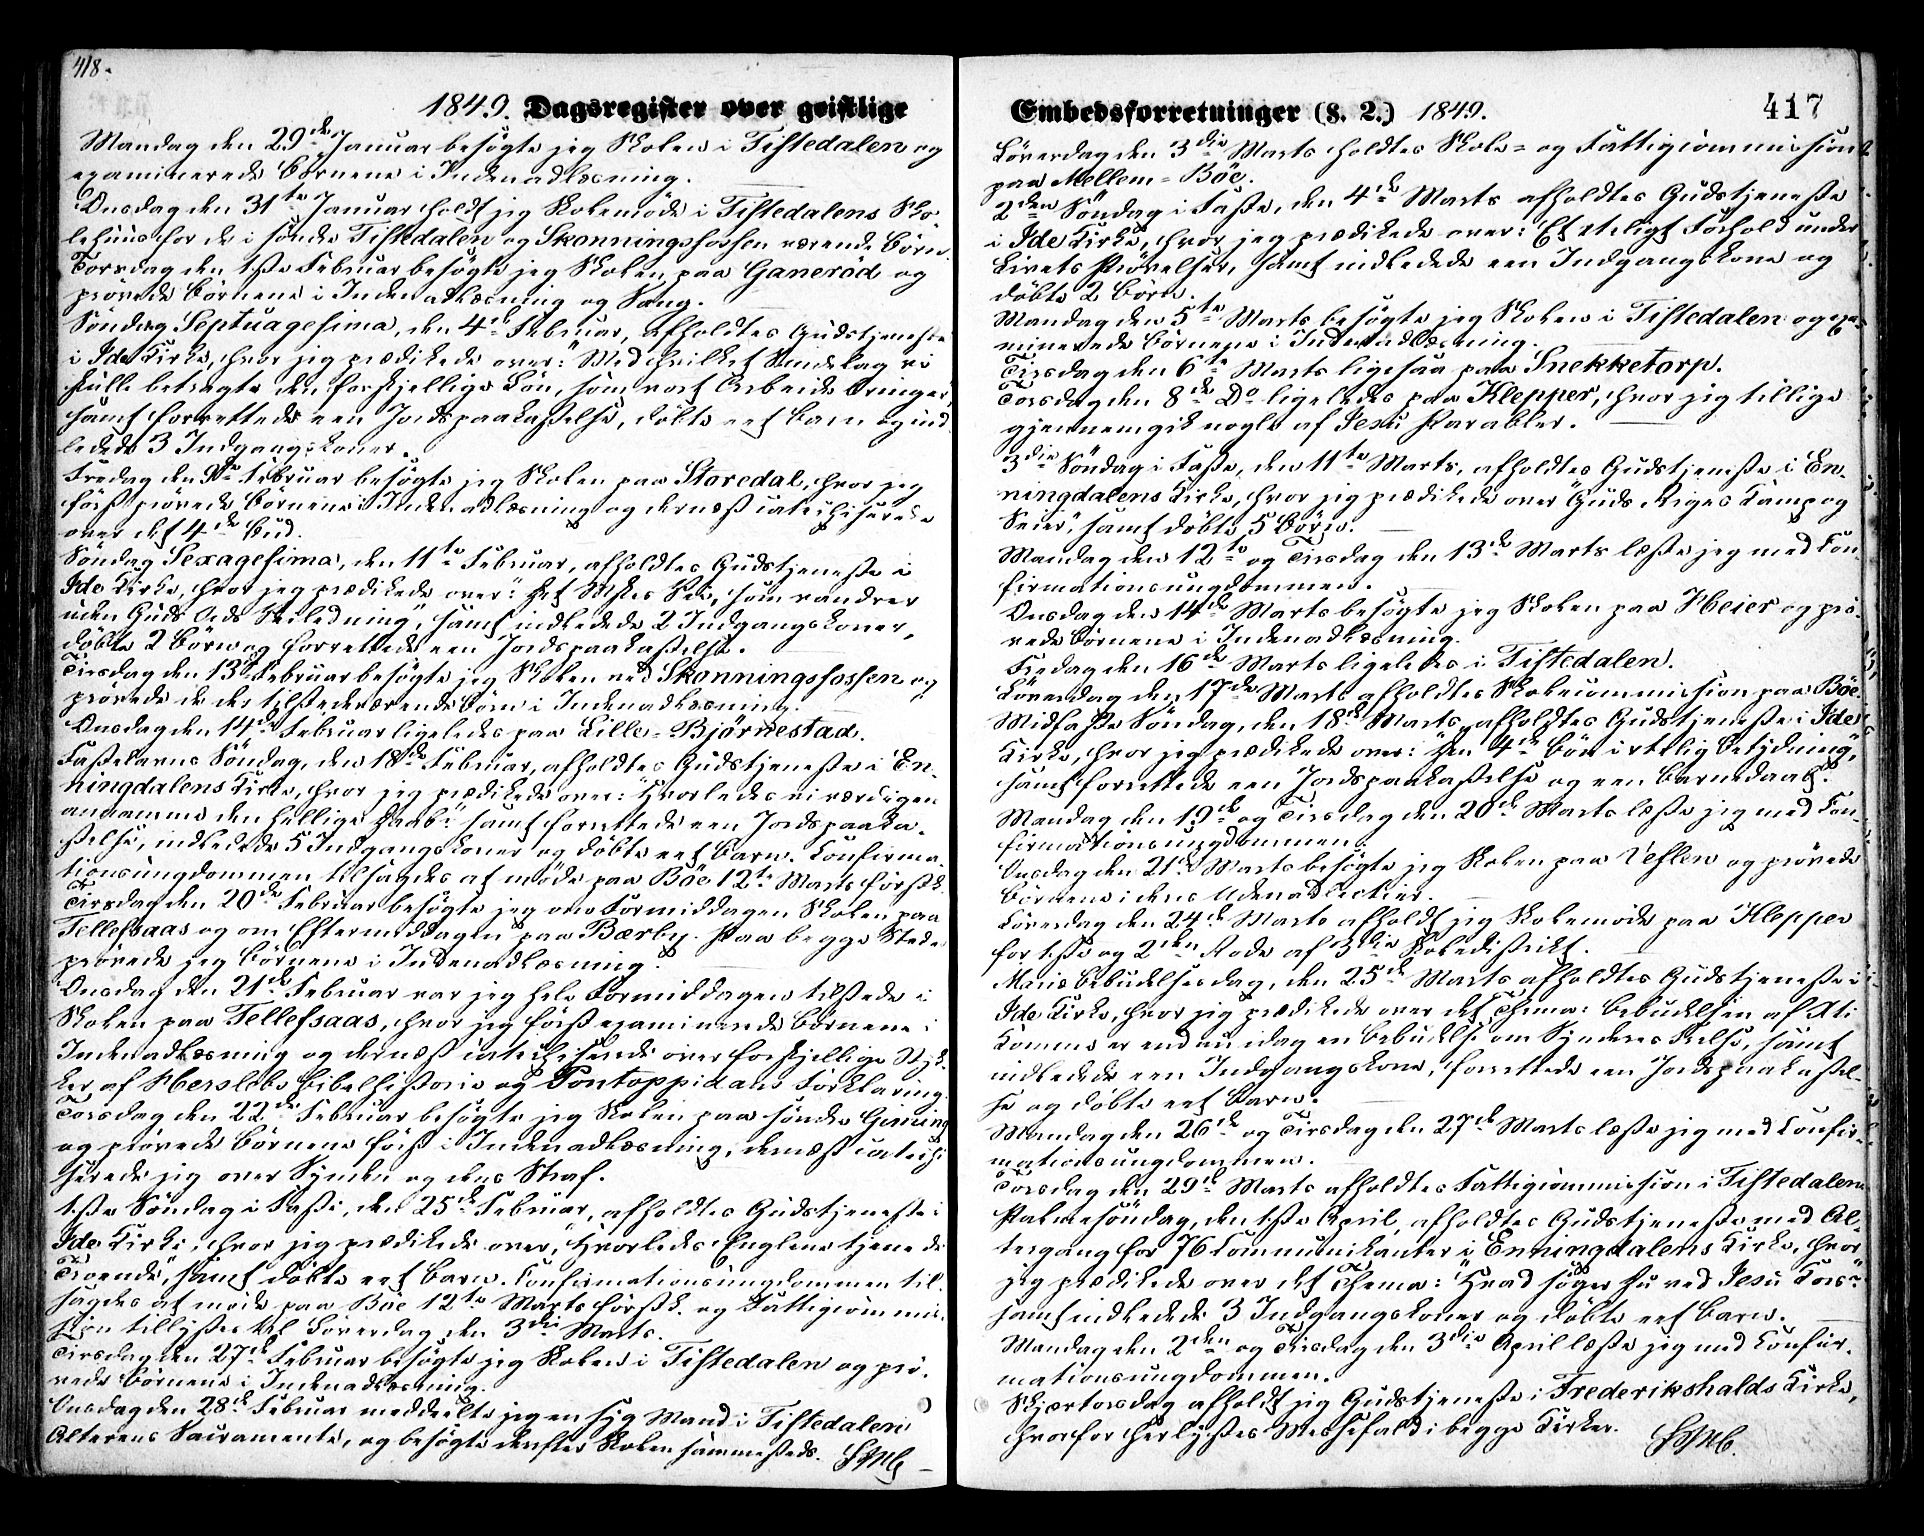 418.
1849. Dagsregister over geistlige
Mandag den 29de Januar besøgte jeg Skolen i Tistedalen og
examinerede Børnene i Indenadlæsning.
Onsdag den 31te Januar holdt jeg Skolemøde i Tistedalens Sko-
lehuus for de i søndre Tistedalen og Skonningsfossen værende Børn.
Torsdag den 1ste Februar besøgte jeg Skolen paa Ganerød og
prøvede Børnene i Indenadlæsning og Sang.
Søndag Septuagesima, den 4de Februar, afholdtes Gudstjeneste
i Ide Kirke, hvor jeg prædikede over: "Med hvilket Sindelag vi
skulle betragte den forskjellige Løn, som vort Arbeide bringer,
samt forrettede een Jordspaakastelse, døbte eet Barn og ind-
ledede 3 Indgangskoner.
Fredag den 9de Februar besøgte jeg Skolen paa Storedal, hvor jeg
først prøvede Børnene i Indenadlæsning og dernæst catechiserede
over det 4de Bud.
Søndag Sexagesima, den 11te Februar, afholdtes Gudstjeneste i
Ide Kirke, hvor jeg prædikede over: Det Mskes Vei, som vandrer
uden Guds Ords Veiledning", samt indledede 2 Indgangskoner,
døbte 2 Børn og forrettede een Jordspaakastelse.
Tirsdag den 13de Februar besøgte jeg Skolen ved Skonningsfossen og
prøvede de der tilstedeværende Børn i Indenadlæsning.
Onsdag den 14de Februar ligeledes paa Lille-Bjørnestad.
Fastelavns Søndag, den 18de Februar, afholdtes Gudstjeneste i En-
ningdalens Kirke, hvor jeg prædikede over: "Hvorledes vi værdigen
annamme den hellige Daab" samt forrettede een Jordspaaka-
stelse, indledede 5 Indgangskoner og døbte eet Barn. Confirma-
tionsungdommen tilsagdes at møde paa Böe 12te Marts førstk.
Tirsdag den 20de Februar besøgte jeg om Formiddagen Skolen paa
Tellefsaas og om Eftermiddagen paa Bærby. Paa begge Steder
prøvede jeg Børnene i Indenadlæsning.
Onsdag den 21de Februar var jeg hele Formiddagen tilstede i
Skolen paa Tellefsaas, hvor jeg først examinerede Børnene i
Indenadlæsning og dernæst catechiserede over forskjellige Styk-
ker af Herslebs Bibelhistorie og Pontoppidans Forklaring.
Torsdag den 22de Februar besøgte jeg Skolen paa søndre
og prøvede Børnene først i Indenadlæsning, dernæst catechi-
serede jeg over Synden og dens Straf.
1ste Søndag i Faste, den 25de Februar, afholdtes Gudstjeneste i
Ide Kirke, hvor jeg prædikede over, "Hvorledes Englene tjene de
Troende", samt døbte eet Barn. Confirmationsungdommen til-
sagdes at møde paa Böe 12te Marts førstk. og Fattigcommis-
sion tillystes til Løverdag den 3die Marts.
Tirsdag den 27de Februar besøgte jeg Skolen i Tistedalen og prø-
vede Børnene i Indenadlæsning.
Onsdag den 28de Februar meddeelte jeg en syg Mand i Tistedalen
Alterens Sacramente, og besøgte derefter Skolen sammesteds.
Embedsforretninger (§. 2.) 1849.
417
Løverdag den 3die Marts holdtes Skole- og Fattigcommission
paa Mellem-Böe.
2den Søndag i Faste, den 4de Marts afholdtes Gudstjeneste
i Ide Kirke, hvor jeg prædikede over: Et Forhold under
Livets Prøvelser, samt indledede een Indgangskone og
døbte 2 Børn.
Mandag den 5te Marts besøgte jeg Skolen i Tistedalen og exa-
minerede Børnene i Indenadlæsning.
Tirsdag den 6te Marts ligesaa paa Snekketorp.
Torsdag den 8de Do ligeledes paa Klepper, hvor jeg tillige
gjennemgik nogle af Jesu Parabler.
3die Søndag i Faste, den 11te Marts, afholdtes Gudstjeneste i En-
ningdalens Kirke, hvor jeg prædikede over "Guds Riges Kamp og
Seier", samt døbte 5 Børn.
Mandag den 12te og Tirsdag den 13de Marts læste jeg med Con-
firmationsungdommen.
Onsdag den 14de Marts besøgte jeg Skolen paa Heier og prø-
vede Børnene i Indenadlæsning.
Fredag den 16de Marts ligeledes i Tistedalen.
Løverdag den 17de Marts afholdtes Skolecommission paa Böe.
Midfaste Søndag, den 18de Marts, afholdtes Gudstjeneste i Ide
Kirke, hvor jeg prædikede over: "Den 4de Bön i Betydning",
samt forrettede een Jordspaakastelse og een Barnedaab.
Mandag den 19de og Tirsdag den 20de Marts læste jeg med Con-
firmationsungdommen.
Onsdag den 21de Marts besøgte jeg Skolen paa Veslen og prøvede
Børnene i deres Udenadlectier.
Løverdag den 24de Marts afholdt jeg Skolemøde paa Klepper
for 1ste og 2den Rode af 3die Skoledistrict.
Mariæ Bebudelsesdag, den 25de Marts, afholdtes Gudstjeneste i
Ide Kirke, hvor jeg prædikede over det Thema: Bebudelsen af Xti
Komme er endnu idag en Bebudelse om Synderes Frelse, samt
indledede een Indgangskone, forrettede een Jordspaakastel-
se og døbte eet Barn.
Mandag den 26de og Tirsdag den 27de Marts læste jeg med Confir-
mationsungdommen.
Torsdag den 29de Marts afholdtes Fattigcommission i Tistedalen.
Palmesøndag, den 1ste April, afholdtes Gudstjeneste med Al-
tergang for 76 Communikanter i Enningdalens Kirke, hvor
jeg prædikede over det Thema: "Hvad søger Du ved Jesu Kors"
samt indledede 3 Indgangskoner og døbte eet Barn.
Mandag den 2den og Tirsdag den 3die April læste jeg med Confir-
mationsungdommen.
Skjærtorsdag afholdt jeg Gudstjeneste i Frederikshalds Kirke,
hvorfor herlystes Messefald i begge Kirker.